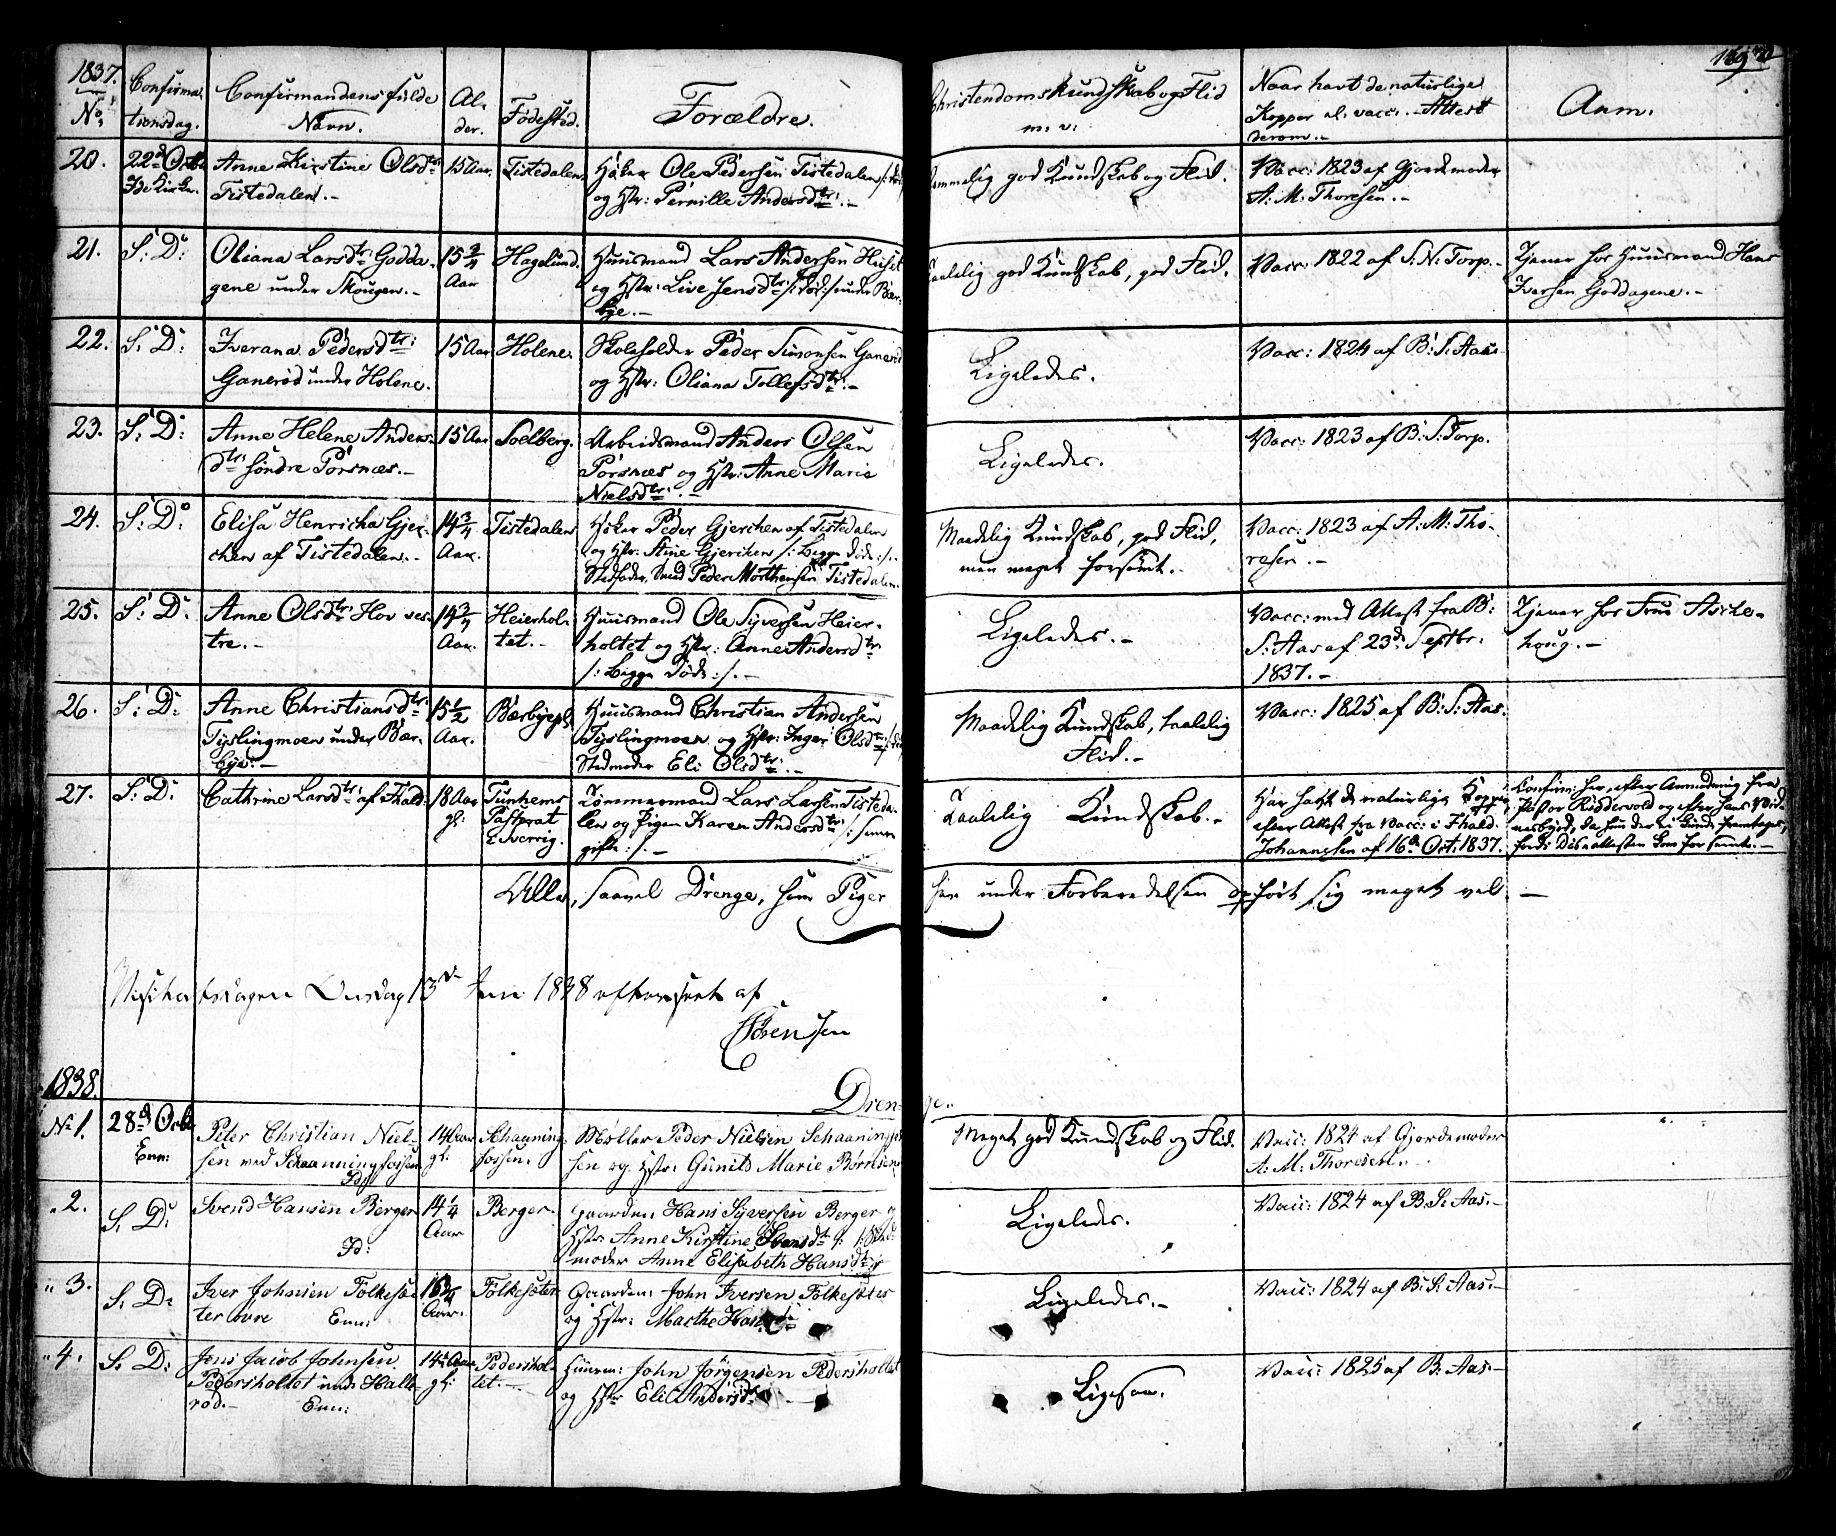 1837.
No.
Confirma-
tionsdag.
Confirmandens fulde
Navn.
Al-
der.
Fødested.
Forældre.
Christendomskundskab og Flid
m. v:
Naar havt de naturlige
Kopper el. vacc: - Attest
derom.-
Anm.
20.
22d Octbr
Ide Kirke.
Anne Kirstine Olsdtr:
Tistedalen.-
15 Aar.
Tistedalen.
Høker Ole Pedersen Tistedalen
og Hstr: Pernille Andersdtr:.-
Temmelig god Kundskab og Flid.
Vacc: 1823 af Gjordemoder
A: M: Thoresen.-
21.
S: D:
Oliana Larsdtr: Godda-
gene under Skougen.-
15 3/4
Aar
Hagelund.
Huusmand Lars Andersen Huset
og Hstr: Live Jensdtr: /: død :/ under Bær-
bye.-
Taalelig god Kundskab, god Flid.
Vacc: 1822 af S. N. Torp.-
Tjener hos Huusmand Hans
Iversen Goddagene.-
22.
S: D:
Iverana Pedersdtr:
Ganerød under Holene.
15 Aar
Holene.
Skoleholder Peder Simonsen Ganerød
og Hstr: Oliana Tollefsdtr:.-
Ligeledes.
Vacc: 1824 af B: S: Aas.
23.
S: D:
Anne Helene Anders-
dtr: søndre Porsnæs.-
15 Aar
Soelberg.
Arbeidsmand Anders Olsen
Porsnæs og Hstr: Anne Marie
Nielsdtr:.-
Ligeledes.
Vacc: 1823 af B: S: Torp.
24.
S: D:
Elisa Henricha Gjer-
chen af Tistedalen.-
14 3/4
Aar.
Tistedalen
Høker Peder Gjerchen af Tistedalen
og Hstr: Anne Gjerchen /: Begge døde :/.
Stedfader, Smed Peder Morthensen Tistedalen.
Maadelig Kundskab, god Flid,
men meget forsømt.-
Vacc: 1823 af A: M: Tho-
resen.-
25.
S: D:
Anne Olsdtr: Hov ves-
tre.-
14 3/4
Aar.
Heierhol-
tet.-
Huusmand Ole Syversen Heier-
holtet og Hstr: Anne Andersdtr:
/: Begge Døde :/.-
Ligeledes.-
Vacc: med Attest fra B:
S: Aas af 23d Septbr:
1837.-
Tjener hos Frue Aske-
houg.-
26.
S: D:
Anne Christiansdtr:
Tyslingmoen under Bær-
bye.-
15 1/2
Aar.
Bærbyepl.
Huusmand Christian Andersen
Tyslingmoen og Hstr: Inger Olsdtr:
Stedmoder Eli Olsdtr:.-
Maadelig Kundskab, taalelig
Flid.-
Vacc: 1825 af B: S: Aas.
27.
S: D:
Cathrine Larsdtr: af Fhald.
18 Aar
gl:
Tunhems
Pastorat
i Sverrig.
Tømmermand Lars Larsen Tisteda-
len og Pigen Karen Andersdtr:
gifte :/.-
Taalelig Kundskab.-
Har havt de naturlige Kopper
efter Attest fra Vacc: i Fhald.
Johannesen af 16d Oct: 1837.
Confirm: her efter Anmodning fra
Pastor Riddervold og efter hans
Alle, saavel Drenge, som Piger
har under Forberedelsen opført sig meget vel.-
Visitatsdagen Onsdag 13de Juni 1838 efterseet af
Sørensen
1838.
Drenge.
No 1.
28d Octbr
Enn:
Peter Christian Niel-
sen ved Schaanningfossen
Id:
14 Aar
gl:
Schaanning-
fossen.
Møller Peder Nielsen Schaaningfos-
sen og Hstr: Gunild Marie Børresen
Meget god Kundskab og Flid.
Vacc: 1824 af Gjordemoder
A. M: Thoresen.-
" 2.
S: D:
Svend Hansen Berger
Id:
14 1/4
Aar
Berger.
Gaardm: Hans Syversen Berger og
Hstr: Anne Kirstine
moder Anne Elisabeth Hansdtr:
Ligeledes.
Vacc: 1824 af B: S: Aas.-
" 3.
S: D:
Iver Johnsen Folkesæ-
ter øvre Enn:
16 3/4
Aar.
Folkesæter
Gaardm: John Iversen Folkesæter
og Hstr: Marthe
Ligeledes.-
Vacc: 1824 af B: S: Aas.-
" 4.
S: D:
Jens Jacob Johnsen
Pedersholtet und: Halle-
rød.- Enn:
14 Aar
gl:
Pedershol-
tet.-
Huusm: John Jørgensen Pedersholtet
og Hstr Eli Andersdtr
Ligesaa.
Vacc: 1825 af B: Aas.-